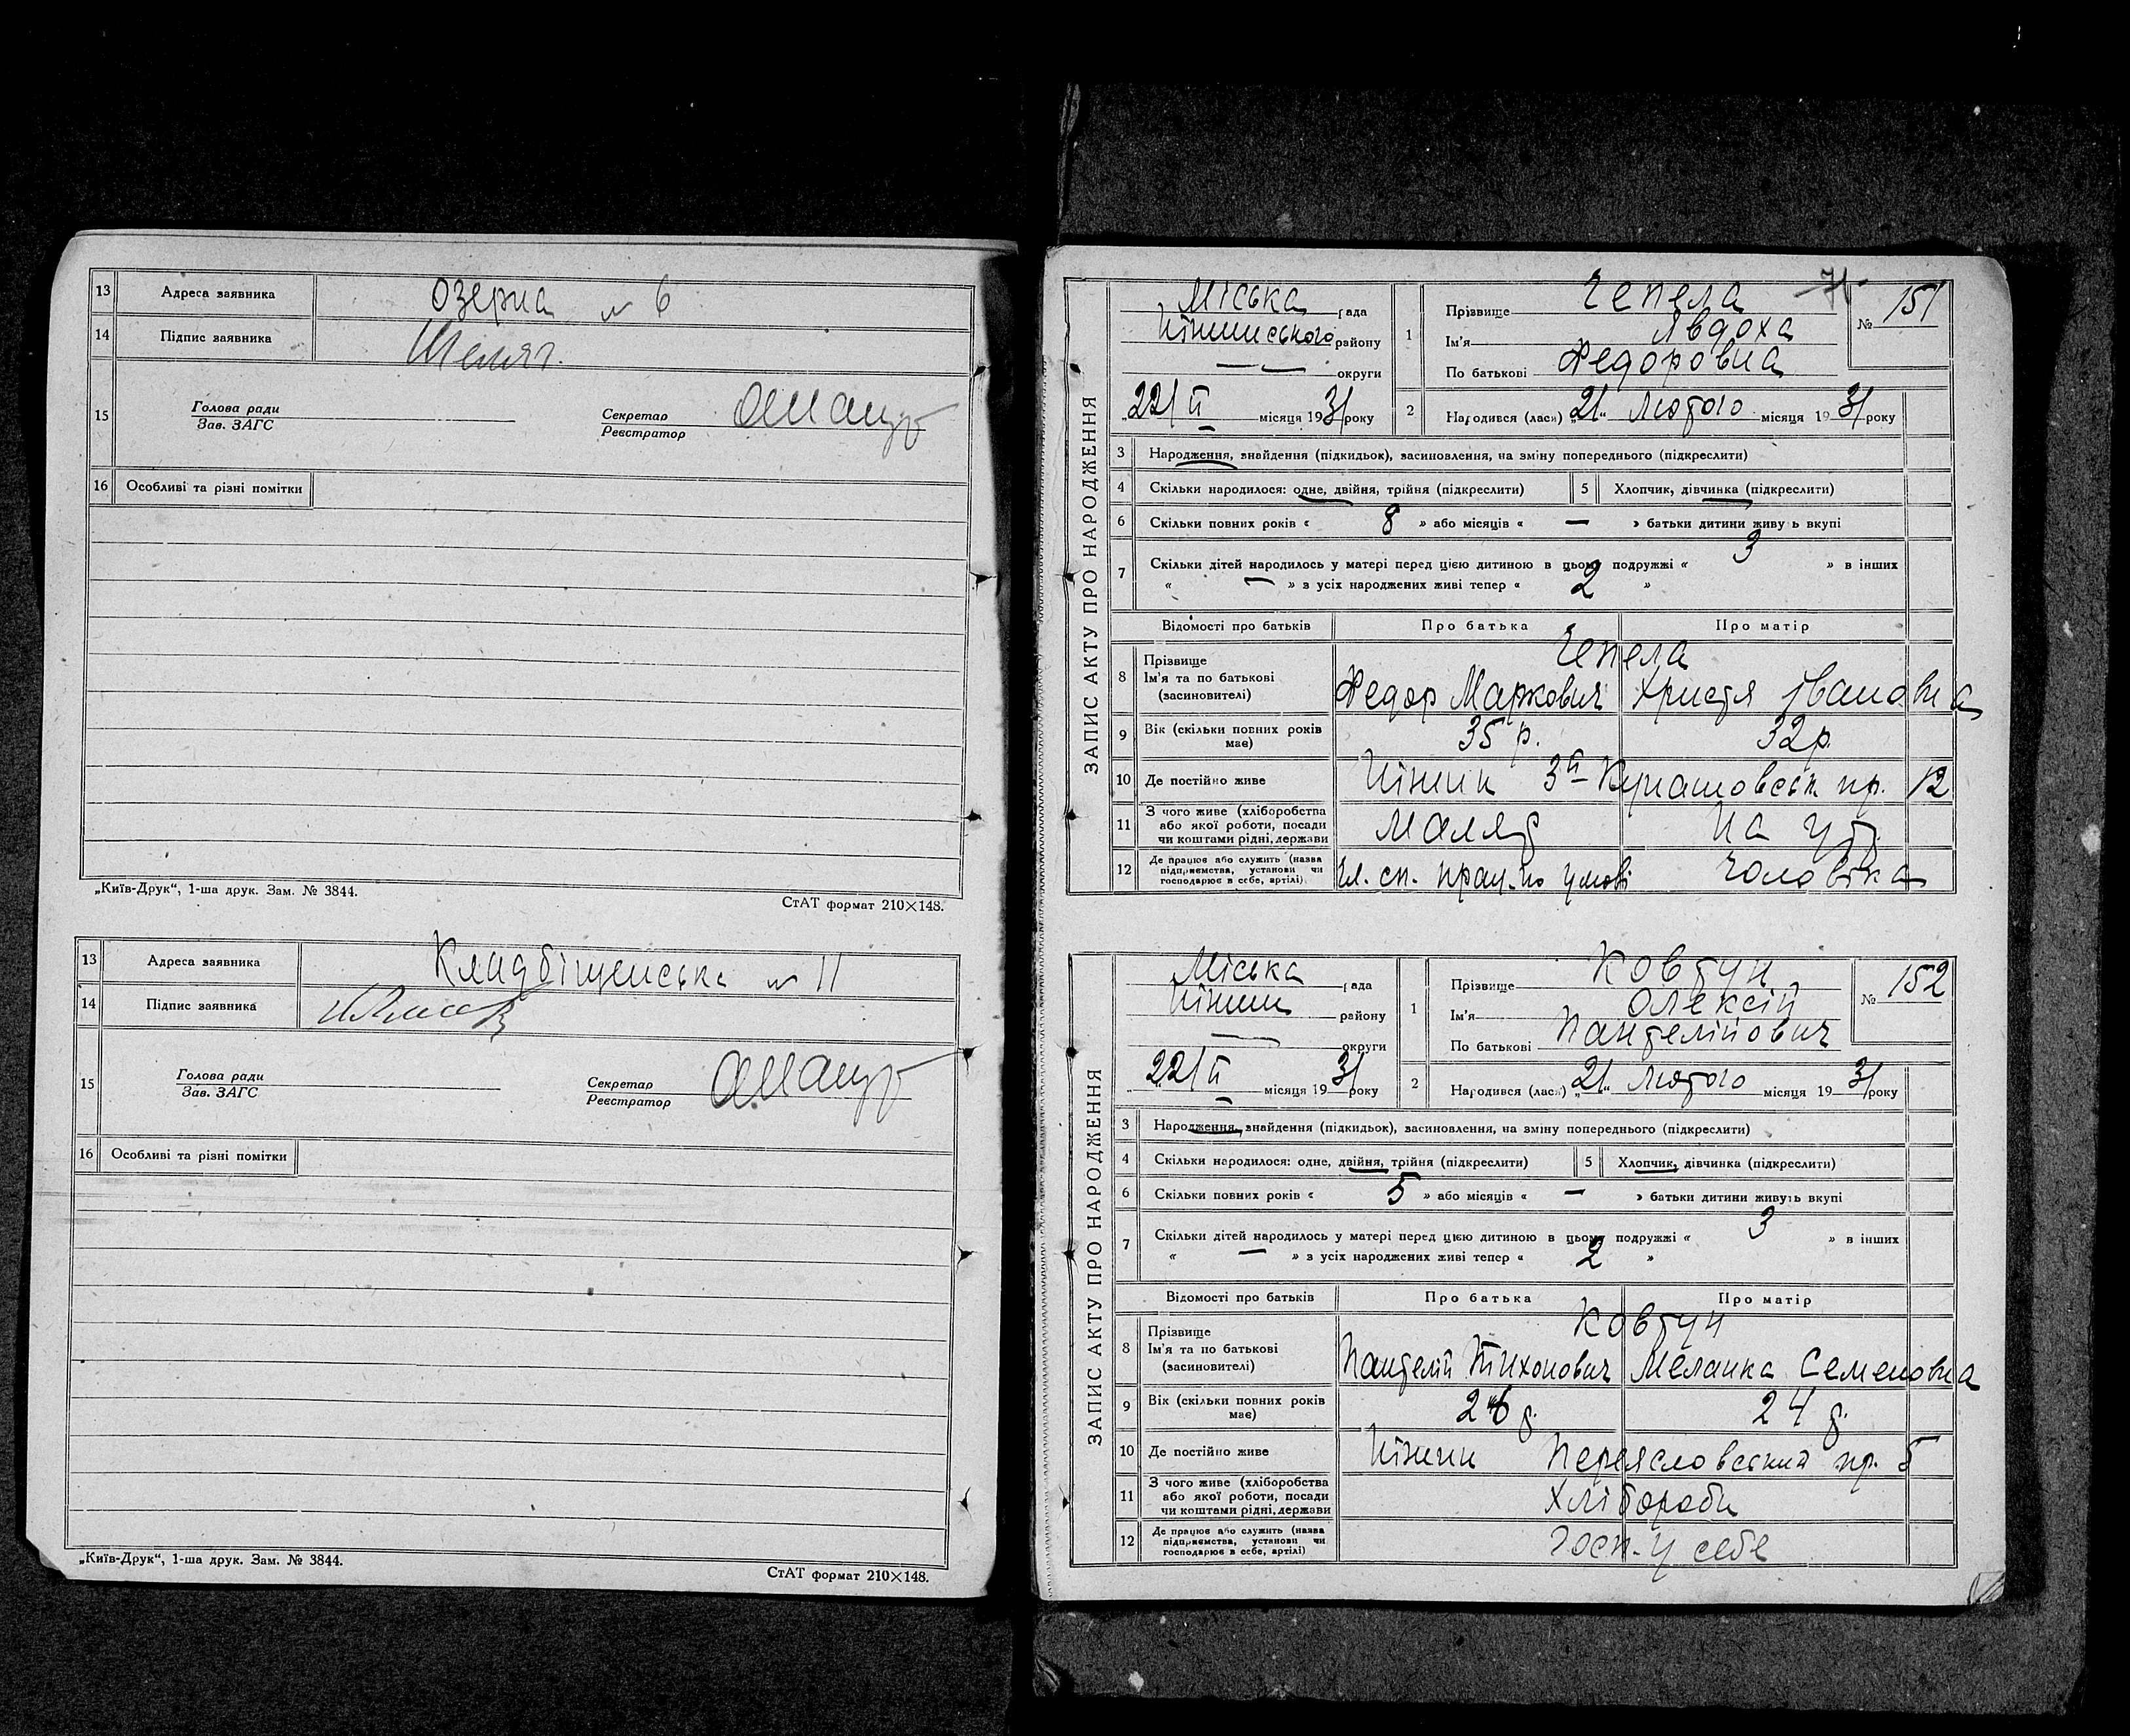 13 Адреса заявника Озерна № 6
14 Підпис заявника
15 Голова ради Зав. ЗАГС Секретар Реєстратор
16 Особливі та різні помітки
„Київ-Друк“, 1-ша друк. Зам. № 3844.
СтАТ формат 210×148.
13 Адреса заявника Кладбіщенська № 11
14 Підпис заявника
15 Голова ради Зав. ЗАГС Секретар Реєстратор
16 Особливі та різні помітки
„Київ-Друк“, 1-ша друк. Зам. № 3844.
СтАТ формат 210×148.
71
ЗАПИС АКТУ ПРО НАРОДЖЕННЯ
Міська рада
Ніжинського району
— — округи
„22/II місяця 1931 року
1 Прізвище Чепела
Ім'я Явдоха
По батькові Федоровна
№ 151
2 Народився (лася) „21“ Лютого місяця 1931 року
3 Народження, знайдення (підкидьок), засиновлення, на зміну попереднього (підкреслити)
4 Скільки народилося: одне, двійня, трійня (підкреслити) 5 Хлопчик, дівчинка (підкреслити)
6 Скільки повних років « 8 » або місяців « — » батьки дитини живуть вкупі
7 Скільки дітей народилось у матері перед цією дитиною в цьому подружжі « 3 » в інших
« — » з усіх народжених живі тепер « 2 »
Відомості про батьків Про батька Про матір
8 Прізвище Ім'я та по батькові (засиновителі) Чепела
Федор Маркович Христя Івановна
9 Вік (скільки повних років має) 35 р. 32 р.
10 Де постійно живе Ніжин 3й Кунашовськ пр. 12
11 З чого живе (хліборобства або якої роботи, посади чи коштами рідні, держави Маляр На ут.
12 Де працює або служить (назва підприємства, установи чи господарює в себе, артілі) Чл. сп. прац. по умові Чоловіка
ЗАПИС АКТУ ПРО НАРОДЖЕННЯ
Міська рада
Ніжин району
— округи
„22/II місяця 1931 року
1 Прізвище Ковтун
Ім'я Олексій
По батькові Пантелійович
№ 152
2 Народився (лася) „21“ Лютого місяця 1931 року
3 Народження, знайдення (підкидьок), засиновлення, на зміну попереднього (підкреслити)
4 Скільки народилося: одне, двійня, трійня (підкреслити) 5 Хлопчик, дівчинка (підкреслити)
6 Скільки повних років « 5 » або місяців « — » батьки дитини живуть вкупі
7 Скільки дітей народилось у матері перед цією дитиною в цьому подружжі « 3 » в інших
« — » з усіх народжених живі тепер « 2 »
Відомості про батьків Про батька Про матір
8 Прізвище Ім'я та по батькові (засиновителі) Ковтун
Пантелій Тихонович Меланка Семеновна
9 Вік (скільки повних років має) 24 р.
10 Де постійно живе Ніжин Переясловський пр. 5
11 З чого живе (хліборобства або якої роботи, посади чи коштами рідні, держави Хлібороби
12 Де працює або служить (назва підприємства, установи чи господарює в себе, артілі) Госп. у себе